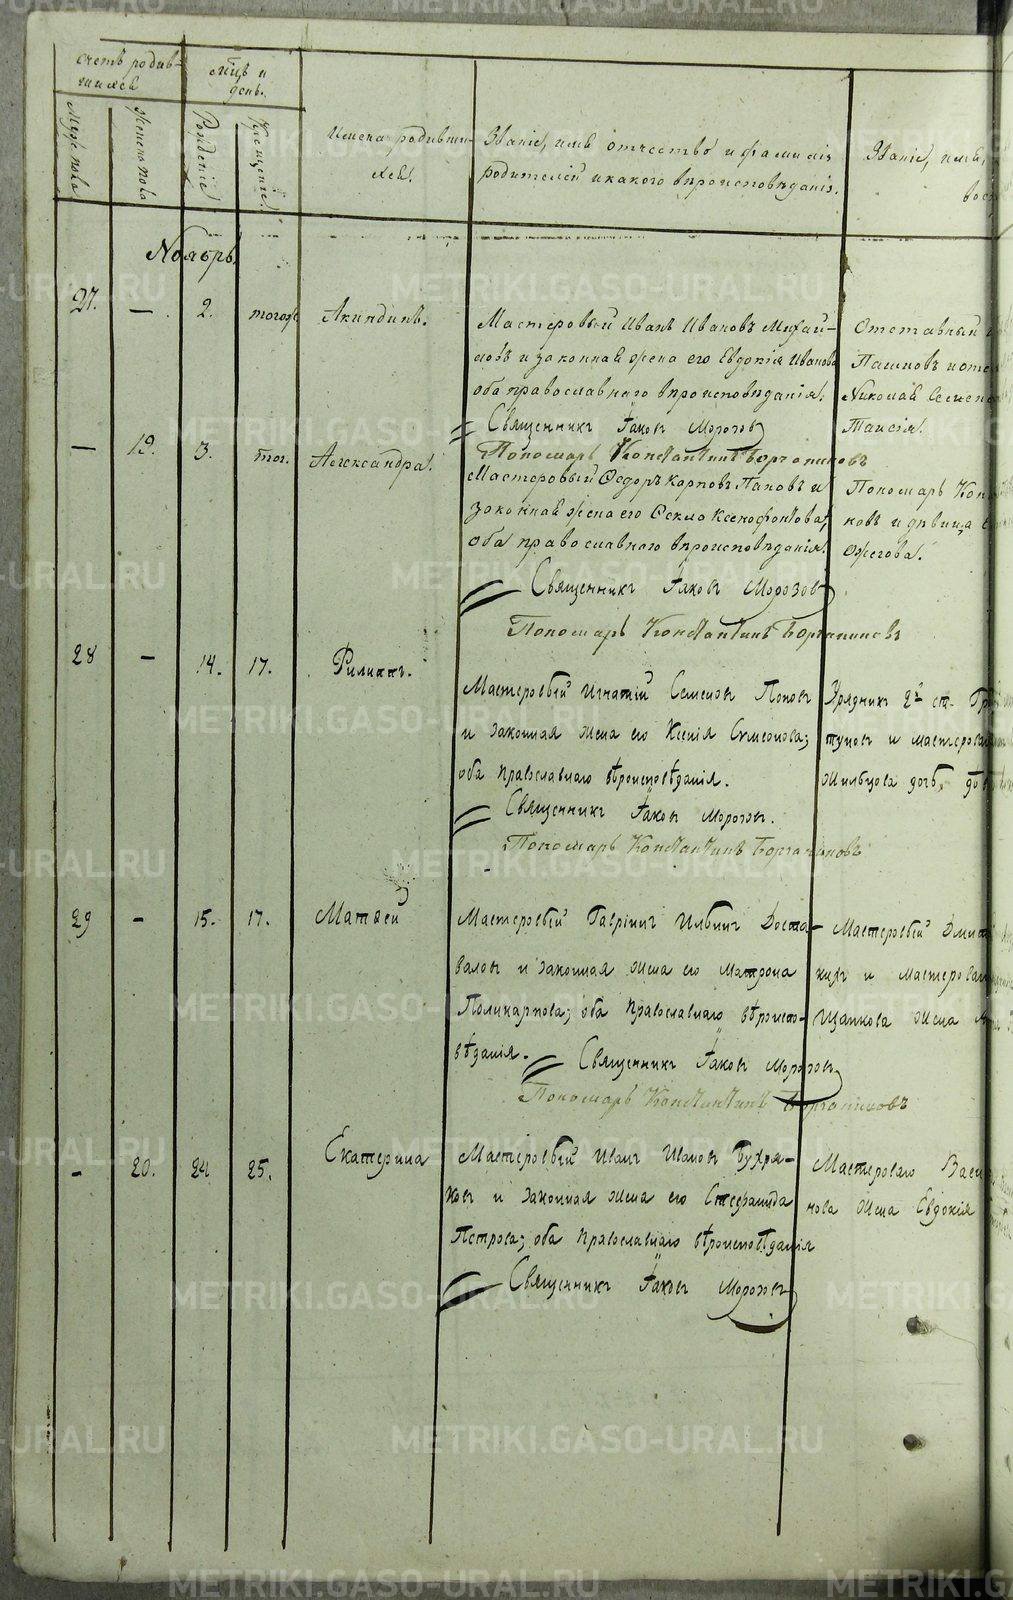 Счетъ родив-
шихся
Мѣц. и
день.
Муж. пола
Женск. пола
Рожденіе
Крещеніе
Имена родивши-
хся.
Званіе, имя отчество и фамилія
родителей и какого вѣроисповѣданія.
Званіе, имя,
Ноябрь
27. — 2. тогож Акиндинъ.
Мастеровый Иванъ Ивановъ Михай-
ловъ и законная жена его Евдокія Иванова
оба православнаго вѣроисповѣданія.
Священникъ Іаковъ Морозов
Пономарь Константинъ
Отставный
Николай Семен
Таисія.
— 19. 3. тог. Александра.
Мастеровый Ѳедоръ Карповъ Паповъ и
законная жена его Ѳекла Ксенофонтова,
оба православнаго вѣроисповѣданія.
Священникъ Іаковъ Морозов
Пономарь Константинъ
Пономарь Кон
новъ и дѣвица
Ожегова.
28 — 14. 17. Филиппъ.
Мастеровый Игнатій Семеновъ Поповъ
и законная жена его Ксенія Симеонова;
оба православнаго вѣроисповѣданія.
Священникъ Іаковъ Морозовъ.
Пономарь Константинъ
Урядникъ 2й ст. Гр
туновъ и мастеров
Жильцова дочь, дѣв
29 — 15. 17. Матѳей
Мастеровый Гавріилъ Ильинъ Доста-
валовъ и законная жена его Матрона
Поликарпова; оба православнаго вѣроиспо-
вѣданія.
Священникъ Іаковъ Морозовъ
Пономарь Константинъ
Мастеровый Дмит
кихъ и мастеров
Щапкова жена
— 20. 24 25. Екатерина
Мастеровый Иванъ Ивановъ Бухря-
ковъ и законная жена его Стефанида
Петрова; оба православнаго вѣроисповѣданія
Священникъ Іаковъ Морозовъ
Мастероваго Васи
нова жена Евдокія
METRIKI.GASO-URAL.RU